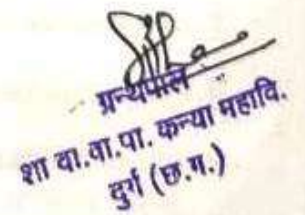 ग्रन्थपाल
शा वा.वा.पा. कन्या महावि.
दुर्ग (छ.ग.)